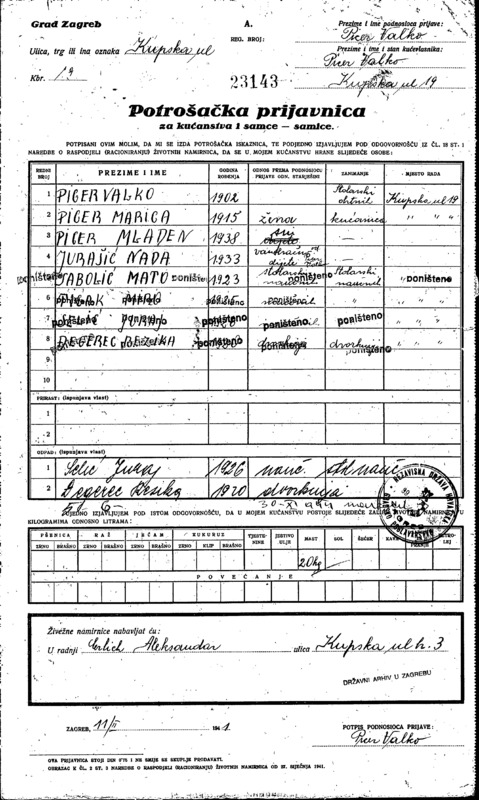 Grad Zagreb
A.
Prezime i ime podnosioca prijave:
Picer Valko
Ulica, trg ili ina oznaka Kupska ul
REG. BROJ:
Prezime i ime i stan kućevlasnika:
Picer Valko
Kbr. 19
23143
Kupska ul 19
Potrošačka prijavnica
za kućanstva i samce — samice.
POTPISANI OVIM MOLIM, DA MI SE IZDA POTROŠAČKA ISKAZNICA, TE PODJEDNO IZJAVLJUJEM POD ODGOVORNOŠĆU IZ ČL. 18 ST. 1
NAREDBE O RASPODJELI (RACIONIRANJU) ŽIVOTNIH NAMIRNICA, DA SE U MOJEM KUĆANSTVU HRANE SLIJEDEĆE OSOBE:
REDNI BROJ PREZIME I IME GODINA ROĐENJA ODNOS PREMA PODNOSIOCU PRIJAVE ODN. STARJEŠINI ZANIMANJE MJESTO RADA
1 PICER VALKO 1902 Stolarski obrtnik Kupska ul 19
2 PICER MARICA 1915 žena kućanica " " "
3 PICER MLADEN 1938 sin —
4 JURAŠIĆ NADA 1933 dijete —
poništeno 5 JABOLIĆ MATO poništeno 1923 stolarski naučnik poništeno Stolarski naučnik poništeno
6 poništeno " "
7 poništeno poništeno poništeno " "
8 DEGEREC REZIKA poništeno dvorkinja poništeno " "
9
10
PRIRAST: (Ispunjava vlast)
1
2
OTPAD: (Ispunjava vlast)
1 Selić Juraj 1926 nauč.
2 Degerec Rezika 1920 dvorkinja
UJEDNO IZJAVLJUJEM POD ISTOM ODGOVORNOŠĆU, DA U MOJEM KUĆANSTVU POSTOJE SLIJEDEĆE ZALIHE ŽIVOTNIH NAMIRNICA U
KILOGRAMIMA ODNOSNO LITRAMA:
PŠENICA RAŽ JEČAM KUKURUZ TJESTENINE JESTIVO ULJE MAST SOL ŠEĆER KAVA PETROLEJ
ZRNO BRAŠNO ZRNO BRAŠNO ZRNO BRAŠNO ZRNO KLIP BRAŠNO
20 kg
POVEĆANJE
NEZAVISNA DRŽAVA HRVATSKA
Živežne namirnice nabavljat ću:
U radnji Erlich Aleksandar ulica Kupska ul br. 3
DRŽAVNI ARHIV U ZAGREBU
ZAGREB, 11/II 1941.
POTPIS PODNOSIOCA PRIJAVE:
Picer Valko
OVA PRIJAVNICA STOJI DIN 0'75 I NE SMIJE SE SKUPLJE PRODAVATI.
OBRAZAC K ČL. 2 ST. 3 NAREDBE O RASPODJELI (RACIONIRANJU) ŽIVOTNIH NAMIRNICA OD 27. SIJEČNJA 1941.